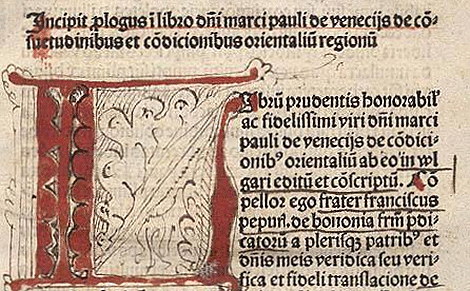 Incipit ꝓlogus ī libro dñi marci pauli de venecijs de cō-
suetudinibus et cōdicionibus orientaliū regionū
Librū prudentis honorabiľ
ac fidelissimi viri dñi marci
pauli de venecijs de cōdici-
onibꝰ orientaliū ab eo in wl
gari editū et cōscriptū. Cō
pellor ego frater franciscus
pepuri. de bononia frm̄ p̄di-
catorū a plerisqꝫ patribꝰ et
dñis meis veridica seu veri-
fica et fideli translacione de